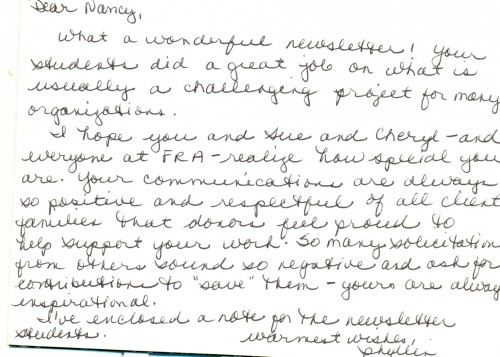 Dear Nancy,
What a wonderful newsletter! Your
students did a great job on what is
usually a challenging project for many
organizations.
I hope you and Sue and Cheryl - and
everyone at FRA - realize how special you
are. Your communications are always
so positive and respectful of all client
families that donors feel proud to
help support your work. So many solicitation
from others sound so negative and ask for
contributions to "save" them - yours are always
inspirational.
I've enclosed a note for the newsletter
students. Warmest wishes,
Phyllis